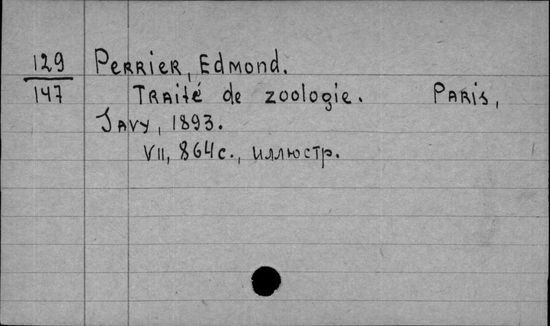 129 Perrier, Edmond.
147 Traité de zoologie. Paris,
Javy, 1893.
VII, 864 с., иллюстр.